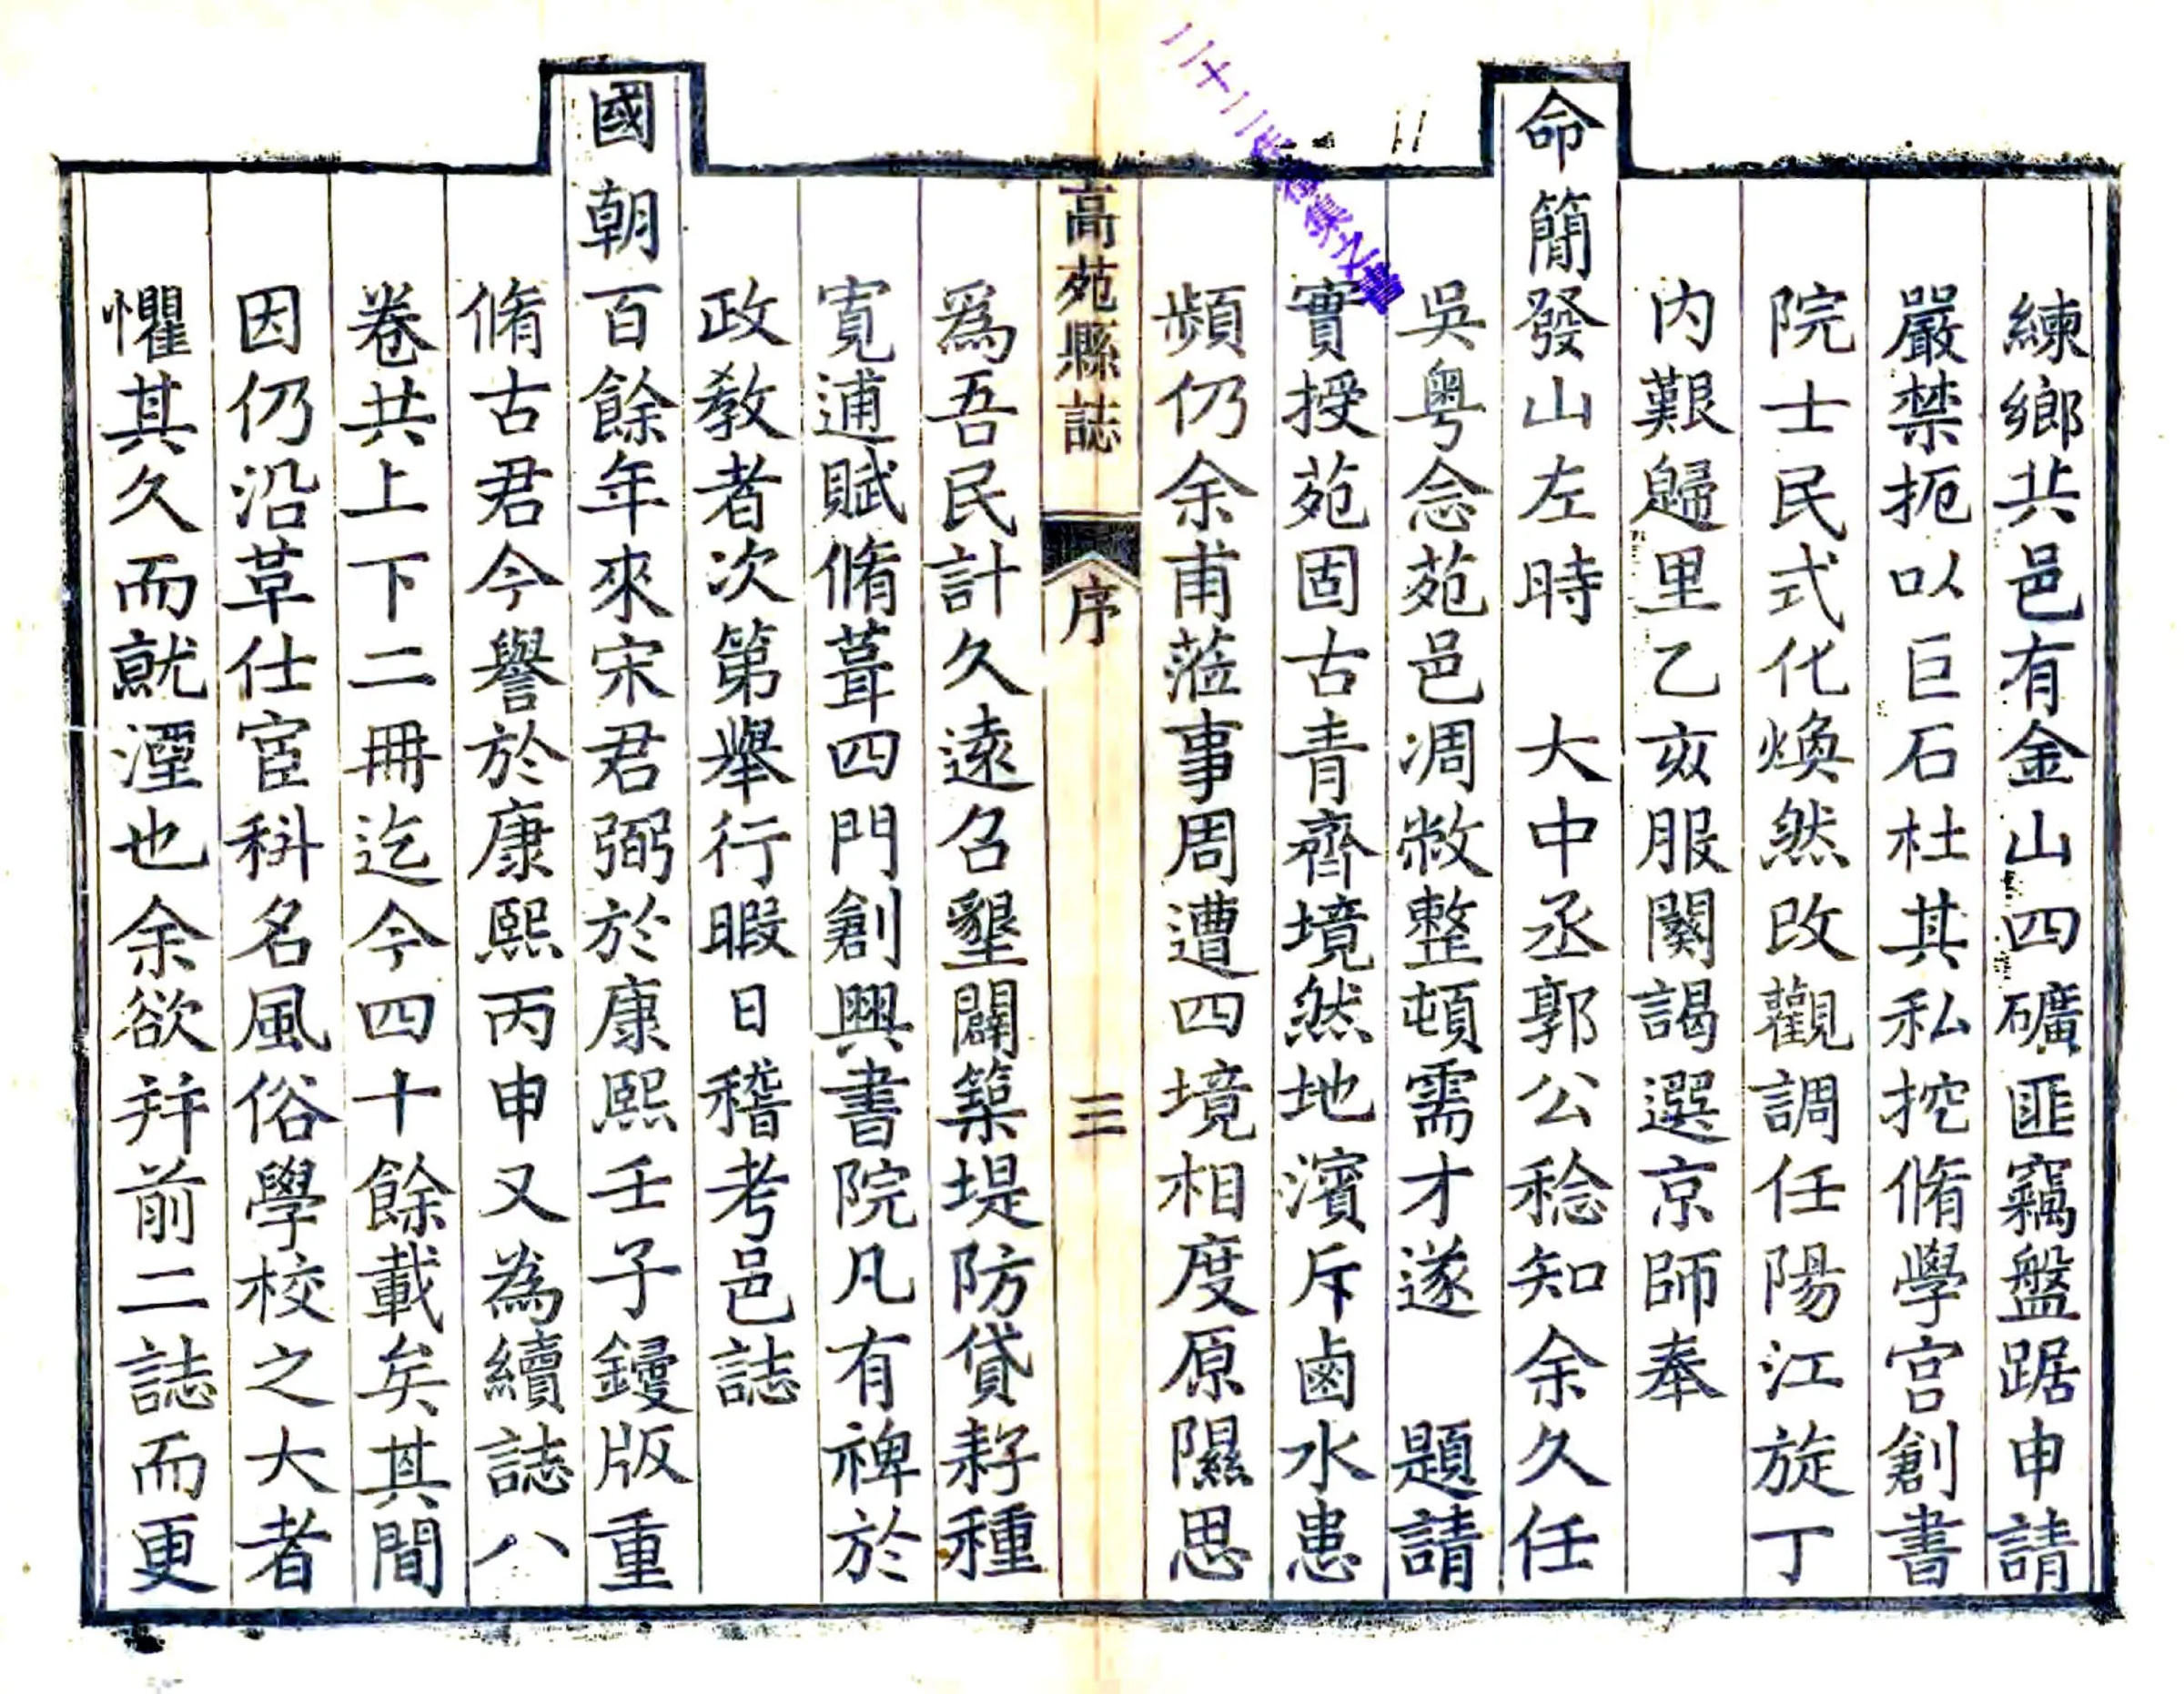 練鄉共邑有金山四礦匪竊盤踞申請
嚴禁扼以巨石杜其私挖脩學宮創書
院士民式化煥然改觀調任陽江旋丁
内艱歸里乙亥服闋謁選京師奉
命簡發山左時　大中丞郭公稔知余久任
吳粵念苑邑凋敝整頓需才遂　題請
實授苑固古青齊境然地濱斥鹵水患
頻仍余甫蒞事周遭四境相度原隰思
高苑縣誌　序　三
爲吾民計久遠召墾闢築堤防貸耔種
寬逋賦脩葺四門創興書院凡有裨於
政教者次第舉行暇日稽考邑誌
國朝百餘年來宋君弼於康熙壬子鋟版重
脩古君今譽於康熙丙申又為續誌八
卷共上下二冊迄今四十餘載矣其間
因仍沿革仕宦科名風俗學校之大者
懼其久而就湮也余欲并前二誌而更
二十二年 集之書